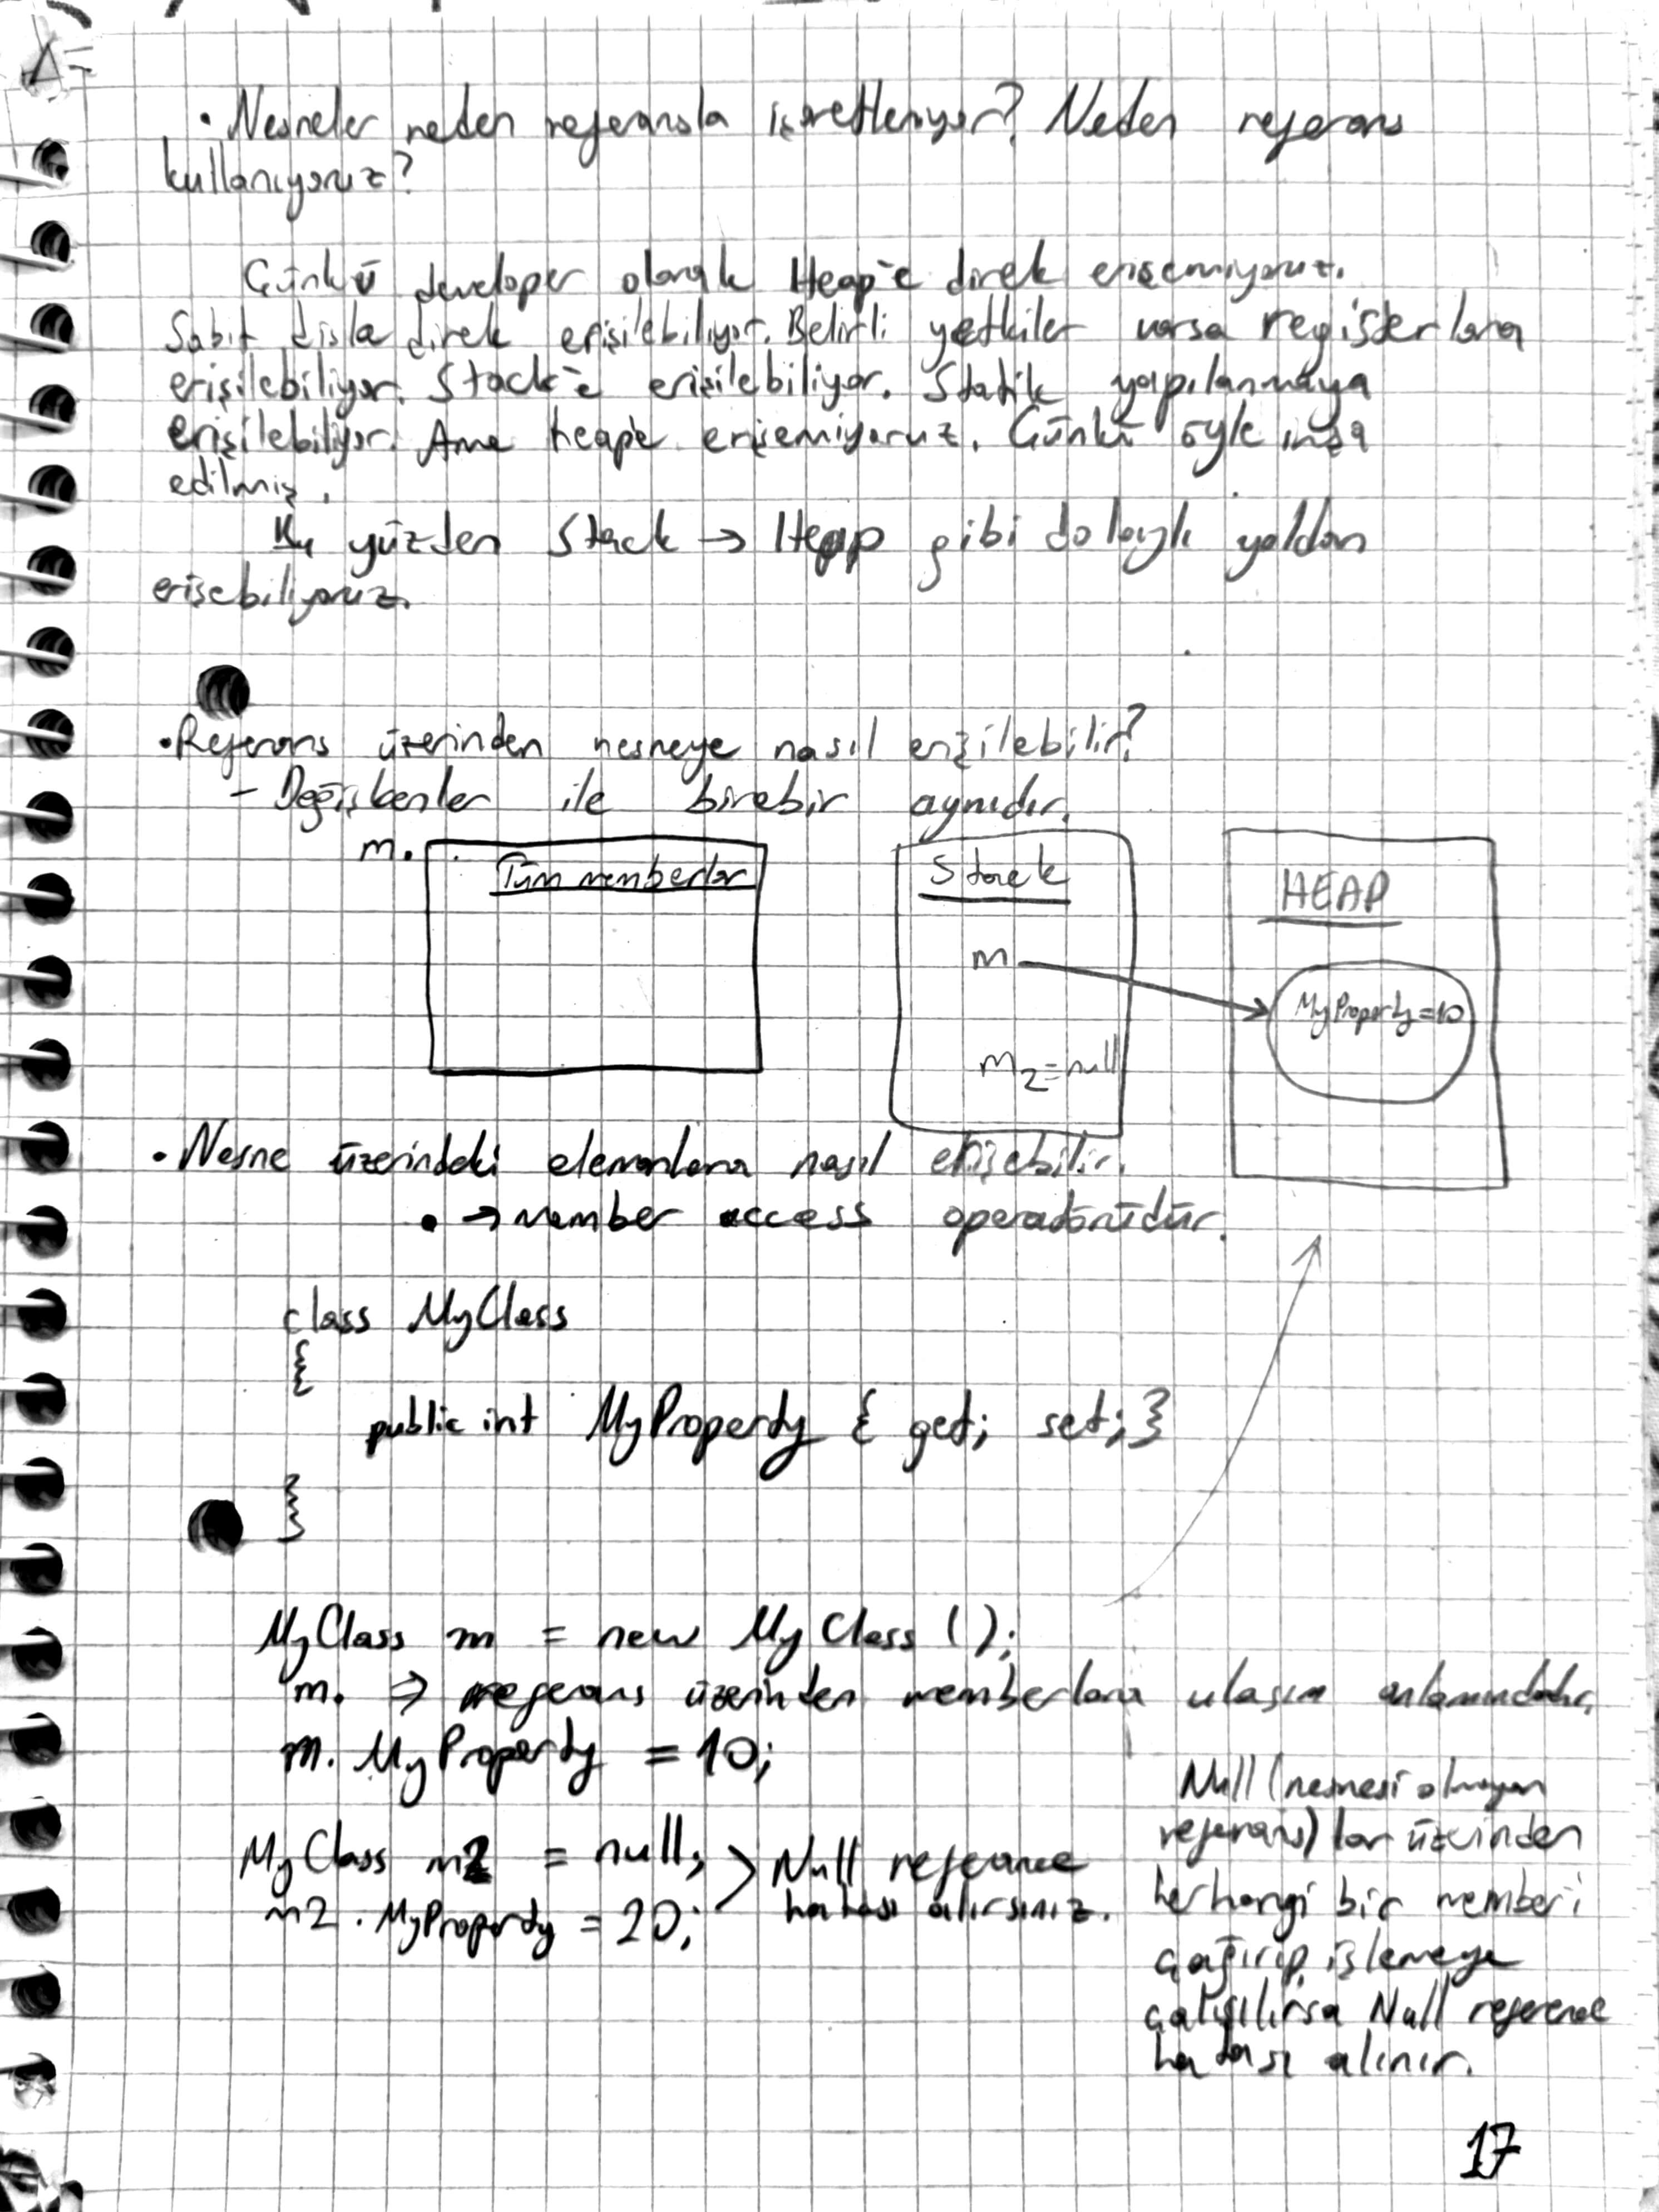 • Nesneler neden referansla işaretleniyor? Neden referans
kullanıyoruz?
Çünkü developer olarak Heap'e direk erişemiyoruz.
Sabit diske direk erişilebiliyor. Belirli yetkiler varsa registerlara
erişilebiliyor. Stack'e erişilebiliyor. Statik yapılanmaya
erişilebiliyor. Ama heap'e erişemiyoruz. Çünkü öyle inşa
edilmiş.
Bu yüzden Stack → Heap gibi dolaylı yoldan
erişebiliyoruz.
• Referans üzerinden nesneye nasıl erişilebilir?
- Değişkenler ile birebir aynıdır.
m.
Tüm memberlar
Stack
m
m2=null
HEAP
MyProperty=10
• Nesne üzerindeki elemanlara nasıl erişebilir.
• → member access operatörüdür.
class MyClass
{
public int MyProperty { get; set; }
}
MyClass m = new MyClass ();
m. ⇒ referans üzerinden memberlara ulaşım anlamındadır.
m. MyProperty = 10;
MyClass m2 = null;
m2 . MyProperty = 20;
> Null referance
hatası alırsınız.
Null (nesnesi olmayan
referans) lar üzerinden
herhangi bir member'i
çağırıp işlemeye
çalışılırsa Null reference
hatası alınır.
17